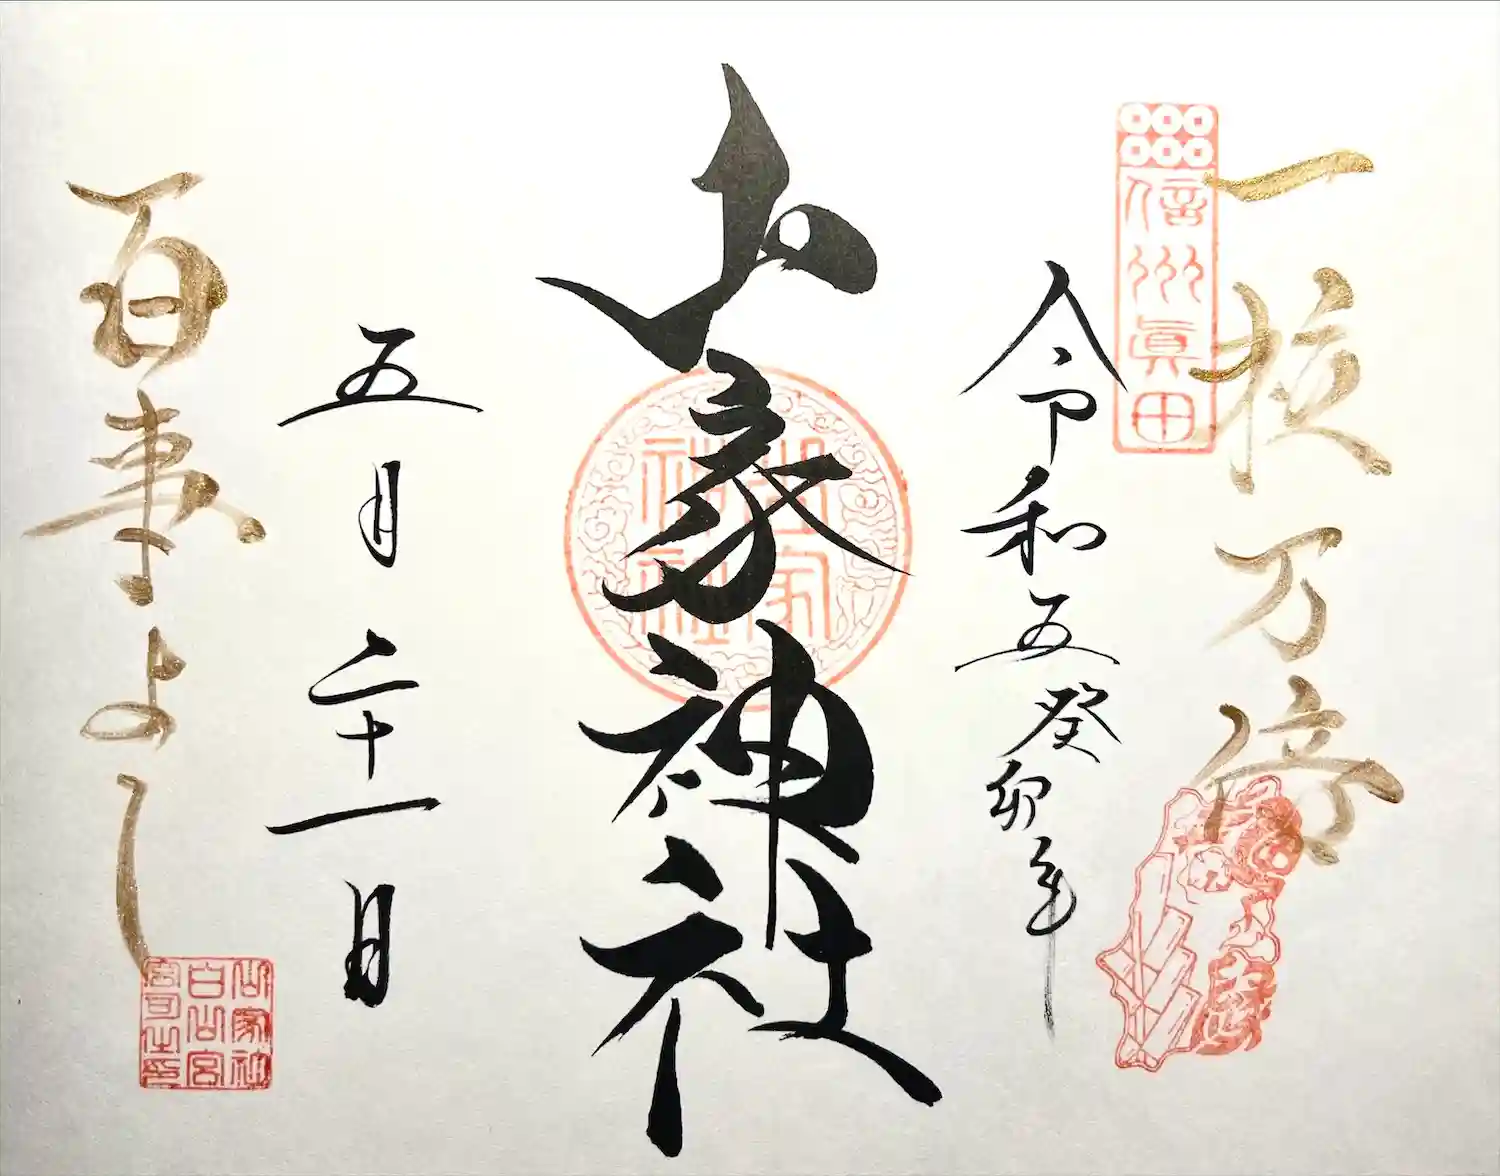 一粒万倍
信州眞田
令和五癸卯年
山家神社
山家神社
五月二十一日
百事よし
山家神
白山宮
宮司之印